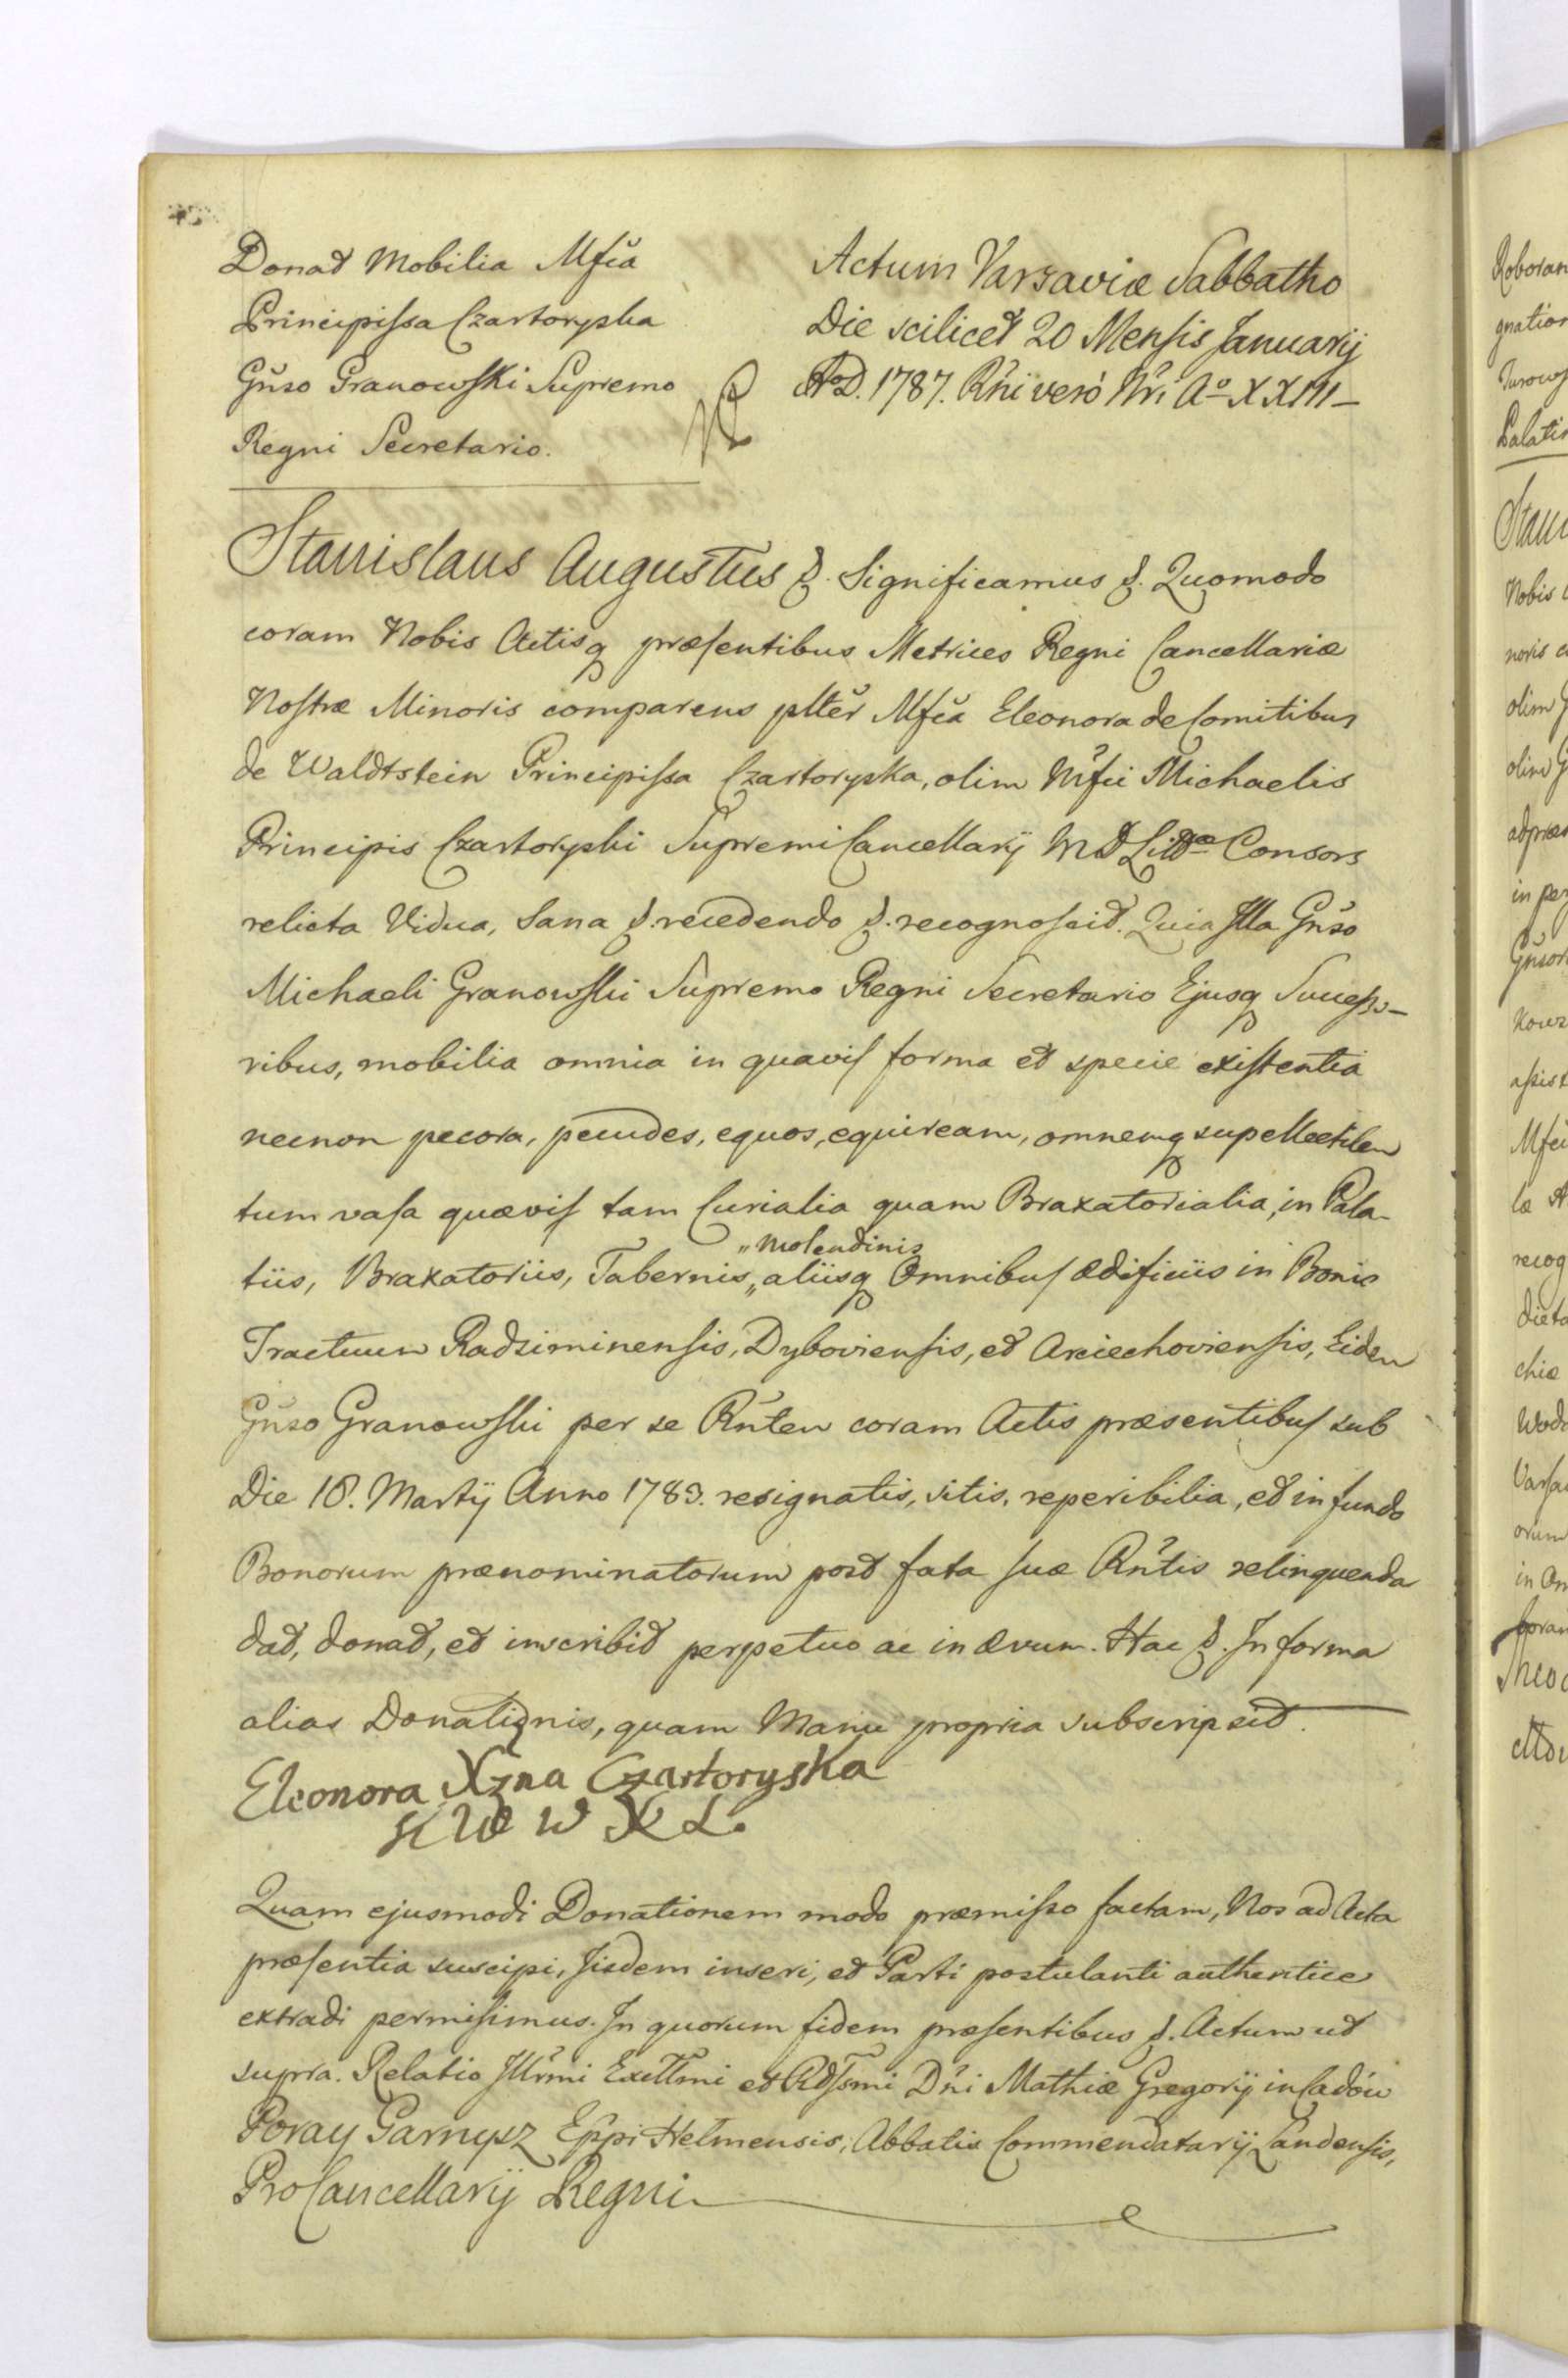 Donat Mobilia Mfca
Principissa Czartoryska
Gnso Granowski Supremo
Regni Secretario.
Actum Varsaviæ Sabbatho
Die scilicet 20 Mensis Januarij
AoD. 1787. Rñi veró Nri Ao XXIII
Stanislaus Augustus &. Significamus &. Quomodo
coram Nobis Actisq præsentibus Metrices Regni Cancellariæ
Nostræ Minoris comparens pltěr Mfča Eleonora de Comitibus
de Waldtstein Principissa Czartoryska, olim Mfci Michaelis
Principis Czartoryski Supremi Cancellarij M D Littæ Consors
relicta Vidua, Sana &. recedendo &. recognoscit. Quia Illa Gnso
Michaeli Granowski Supremo Regni Secretario Ejusq Successo-
ribus, mobilia omnia in quavis forma et specie existentia
necnon pecora, pecudes, equos, equiream, omnemq supellectilem
tum vasa quævis tam Curialia quam Braxatorialia, in Pala-
„ Molendinis
tiis, Braxatoriis, Tabernis, „ aliisq Omnibus Ædificiis in Bonis
Tractuum Radziminensis, Dyboviensis, et Arciechoviensis, Eidem
Gnso Granowski per se Rñtem coram Actis præsentibus sub
Die 18. Martij Anno 1783. resignatis, sitis, reperibilia, et in fundo
Bonorum prænominatorum post fata suæ Rñtis relinquenda
dat, donat, et inscribit perpetuo ac in ævum. Hac &. In forma
alias Donationis, quam Manu propria subscripsit.
Eleonora Xzna Czartoryska
K W W X L.
Quam ejusmodi Donationem modo præmisso factam, Nos ad Acta
præsentia suscipi, Iisdem inseri, et Parti postulanti authentice
extradi permisimus. In quorum fidem præsentibus &. Actum ut
supra. Relatio Illrmi Excllmi et Rdssmi Dñi Mathiæ Gregorij in Radów
Poray Garnysz Eppi Helmensis, Abbatis Commendatarij Landensis,
ProCancellarij Regni